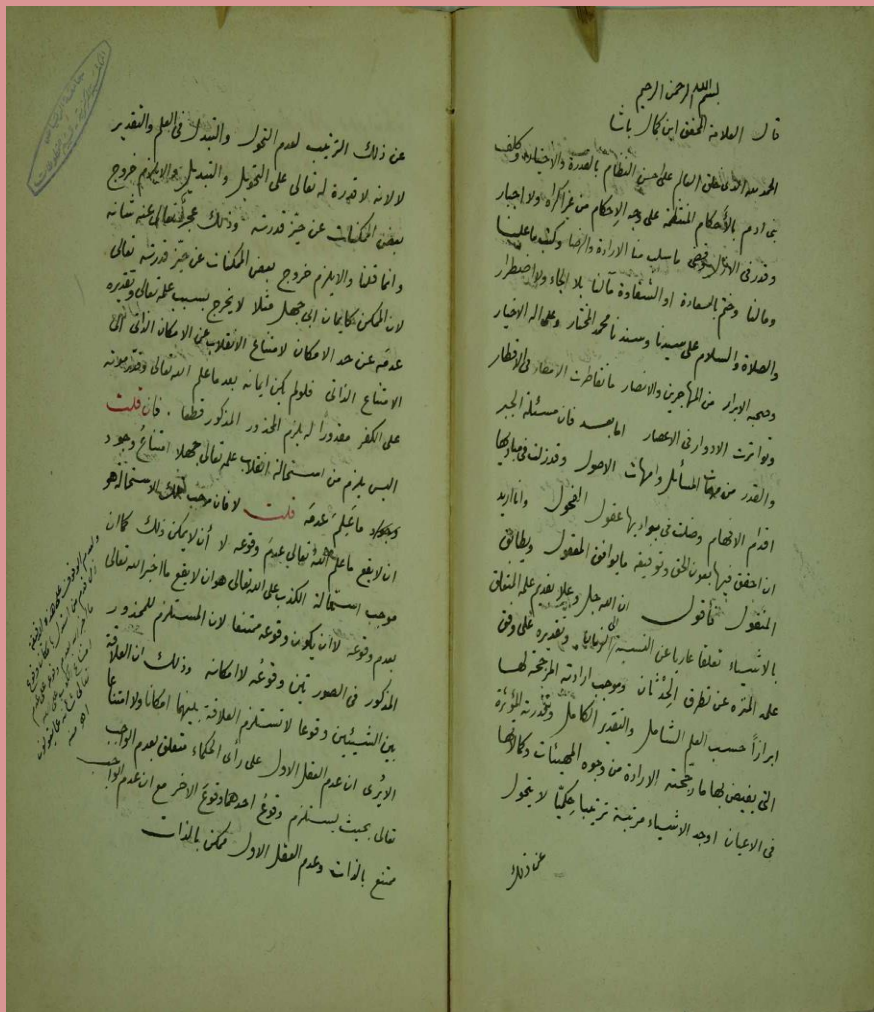 بسم الله الرحمن الرحيم
قال العلامة المحقق ابن كمال باشا
الحمد لله الذى خلق العالم على احسن النظام بالقدرة والاختيار وكلف
بنى ادم بالأحكام المنتظمة على وجه الإحكام من غير اكراه ولا اجبار
وقدر فى الازل وقضى ما سلب منا الارادة والرضا وكتب ما علينا
ومالنا وختم بالسعادة او الشقاوة مآلنا بلا الجاء ولا اضطرار
والصلاة والسلام على سيدنا وسندنا محمد المختار وعلى اله الاخيار
وصحبه الابرار من المهاجرين والانصار ما تقاطرت الامطار فى الاقطار
وتواترت الادوار فى الاعصار اما بعد فان مسئلة الجبر
والقدر من مهمات المسائل وامهات الاصول وقد زلت فى مباديها
اقدام الافهام وضلت فى بواديها عقول الفحول وانا اريد
ان احقق فيها بعون الحق وتوفيقه ما يوافق المعقول ويطابق
المنقول فأقول ان الله جل وعلا بقديم علمه المتعلق
بالاشياء تعلقا عاريا عن النسبة الى الزمان وتقديره على وفق
علمه المنزه عن تطرق الحِدْثان وبموجب ارادته المرجحة لها
ابرازًا حسب العلم الشامل والتقدير الكامل وبقدرته المؤثرة
التى يفيض بها ما رجحته الارادة من وجوه المهيئات وكمالاتها
فى الاعيان اوجد الاشياء مرتبة ترتيبا حِكميًا لا يتحول
عن ذلك
عن ذلك الترتيب لعدم التحول والتبدل فى العلم والتقدير
لا لانه لا قدرة له تعالى على التحويل والتبديل والا يلزم خروج
بعض الممكنات عن حيّز قدرته وذلك عجز تعالى عنه شانه
وانما قلنا والا يلزم خروج بعض الممكنات عن حيّز قدرته تعالى
لان الممكن كايمان ابى جهل مثلا لا يخرج بسبب علمه تعالى وتقديره
عدمَه عن حد الامكان لامتناع الانقلاب عن الامكان الذاتى الى
الامتناع الذاتى فلو لم يكن ايمانه بعد ما علم الله تعالى وقدّر موته
على الكفر مقدورًا له يلزم المحذور المذكور قطعا . فان قلت
اليس يلزم من استحالة انقلاب علمه تعالى جهلا امتناعُ وجود
ما عَلِمَ عدمَه قلت لا فان موجب تلك الاستحالة هو
ان لا يقع ما علم الله تعالى عدم وقوعه لا أن لا يمكن ذلك كما ان
موجب استحالة الكذب على الله تعالى هو ان لا يقع ما اخبر الله تعالى
بعدم وقوعه لا ان يكون وقوعه ممتنعا لان المستلزم للمحذور
المذكور فى الصورتين وقوعُه لا امكانه وذلك ان العلاقة
بين الشيئين وقوعا لا تستلزم العلاقة بينهما امكانا ولا امتناعا
الا يُرى ان عدم العقل الاول على رأى الحكماء متعلق بعدم الواجب
تعالى بحيث يستلزم وقوعُ احدهما وقوعَ الاخر مع ان عدم الواجب
ممتنع بالذات وعدم العقل الاول ممكن بالذات